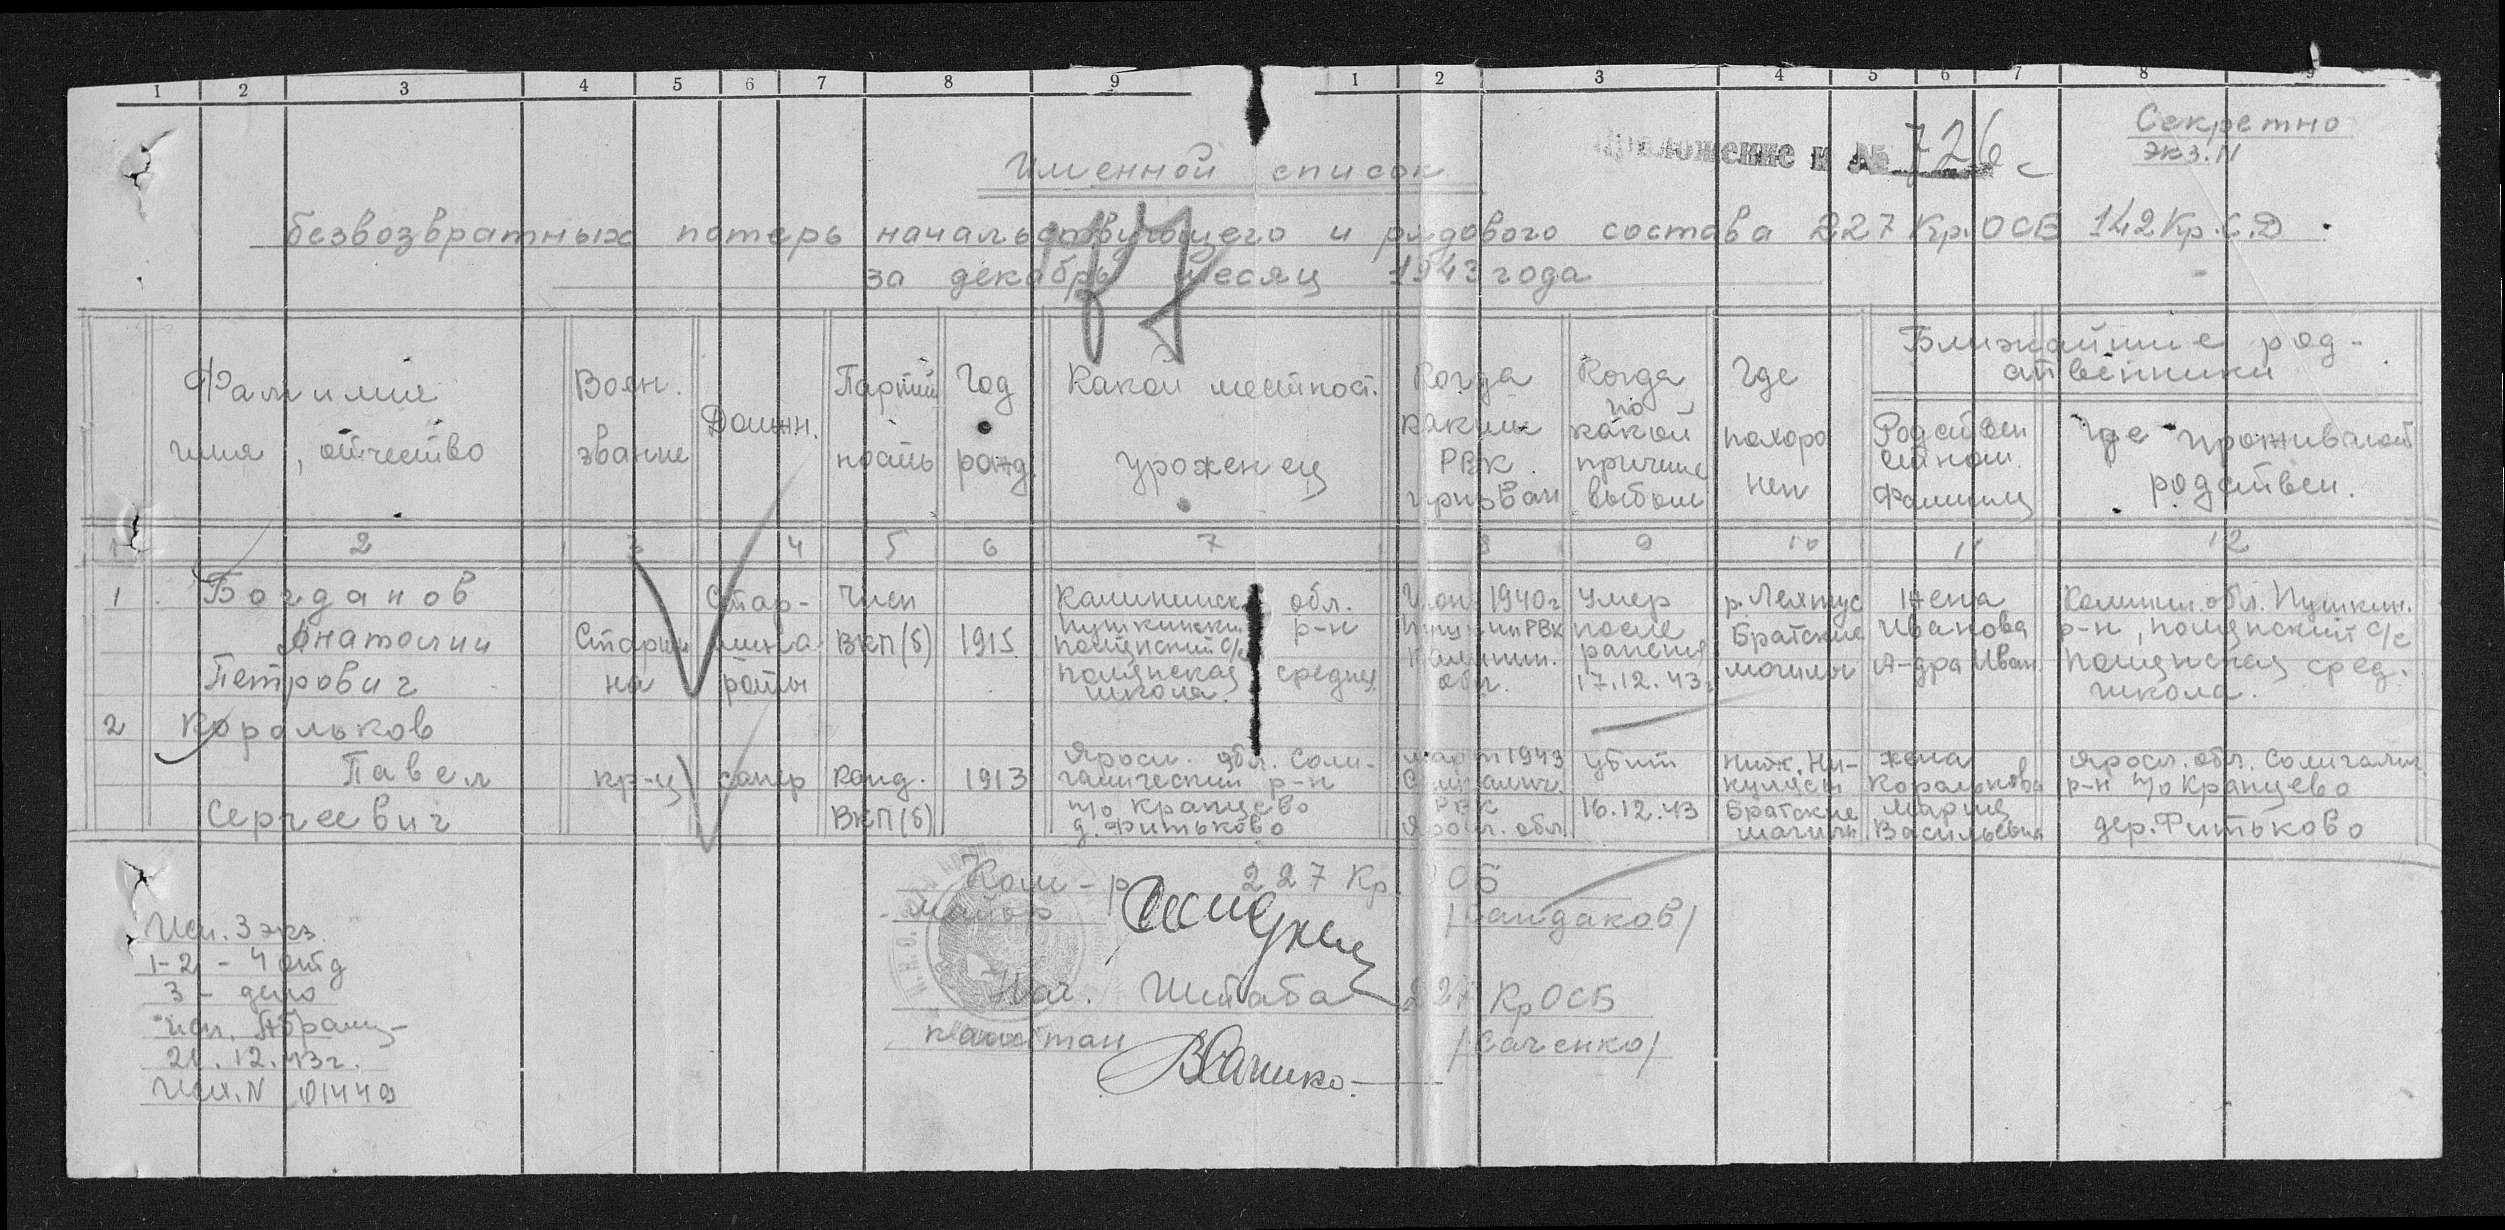 1 2 3 4 5 6 7 8 9 1 2 3 4 5 6 7 8 9
Секретно
экз. N
Приложение к № 726 с
Именной список
безвозвратных потерь начальствующего и рядового состава 227 Кр. ОСБ 142 Кр. С.Д
за декабрь месяц 1943 года
Фамилия
имя, отчество
Воен.
звание
Должн.
Партий
ность
Год
рожд.
Какой местност.
уроженец
Когда
каким
РВК
призван
Когда
по
какой
причине
выбыл
Где
похоро
нен
Ближайшие род-
ственники
Родствен
Фамилии
Где проживают
родствен.
1 2 3 4 5 6 7 8 9 10 11 12
1
Богданов
Анатолий
Петрович
Старши
на
Стар-
шина
роты
Член
ВКП(б)
1915
Калининск обл.
Пушкински р-н
школа.
средняя
Июн 1940 г
РВК
Калинин.
обл.
Умер
после
ранения
17.12.43 г
р. Лехтус
Братские
могилы
Жена
Иванова
А-дра Иван.
Калинин. обл. Пушкин.
р-н, с/с
сред.
школа.
2
Корольков
Павел
Сергеевич
кр-ц
сапер
Канд.
ВКП(б)
1913
Яросл. обл. Соли-
галический р-н
п/о Кранцево
д. Фитьково
март 1943
Солигалич.
РВК
Яросл. обл.
убит
16.12.43
Братские
могилы
жена
Королькова
Мария
Васильевна
Яросл. обл. Солигалич.
р-н п/о Кранцево
дер. Фитьково
Ком-р 227 Кр. ОСБ
майор
/Сандаков/
Нач. Штаба 227 КрОСБ
капитан
/Саченко/
Исп. 3 экз.
1-2 - 4 отд
3 - дело
21.12.43 г.
Исх. N 01449